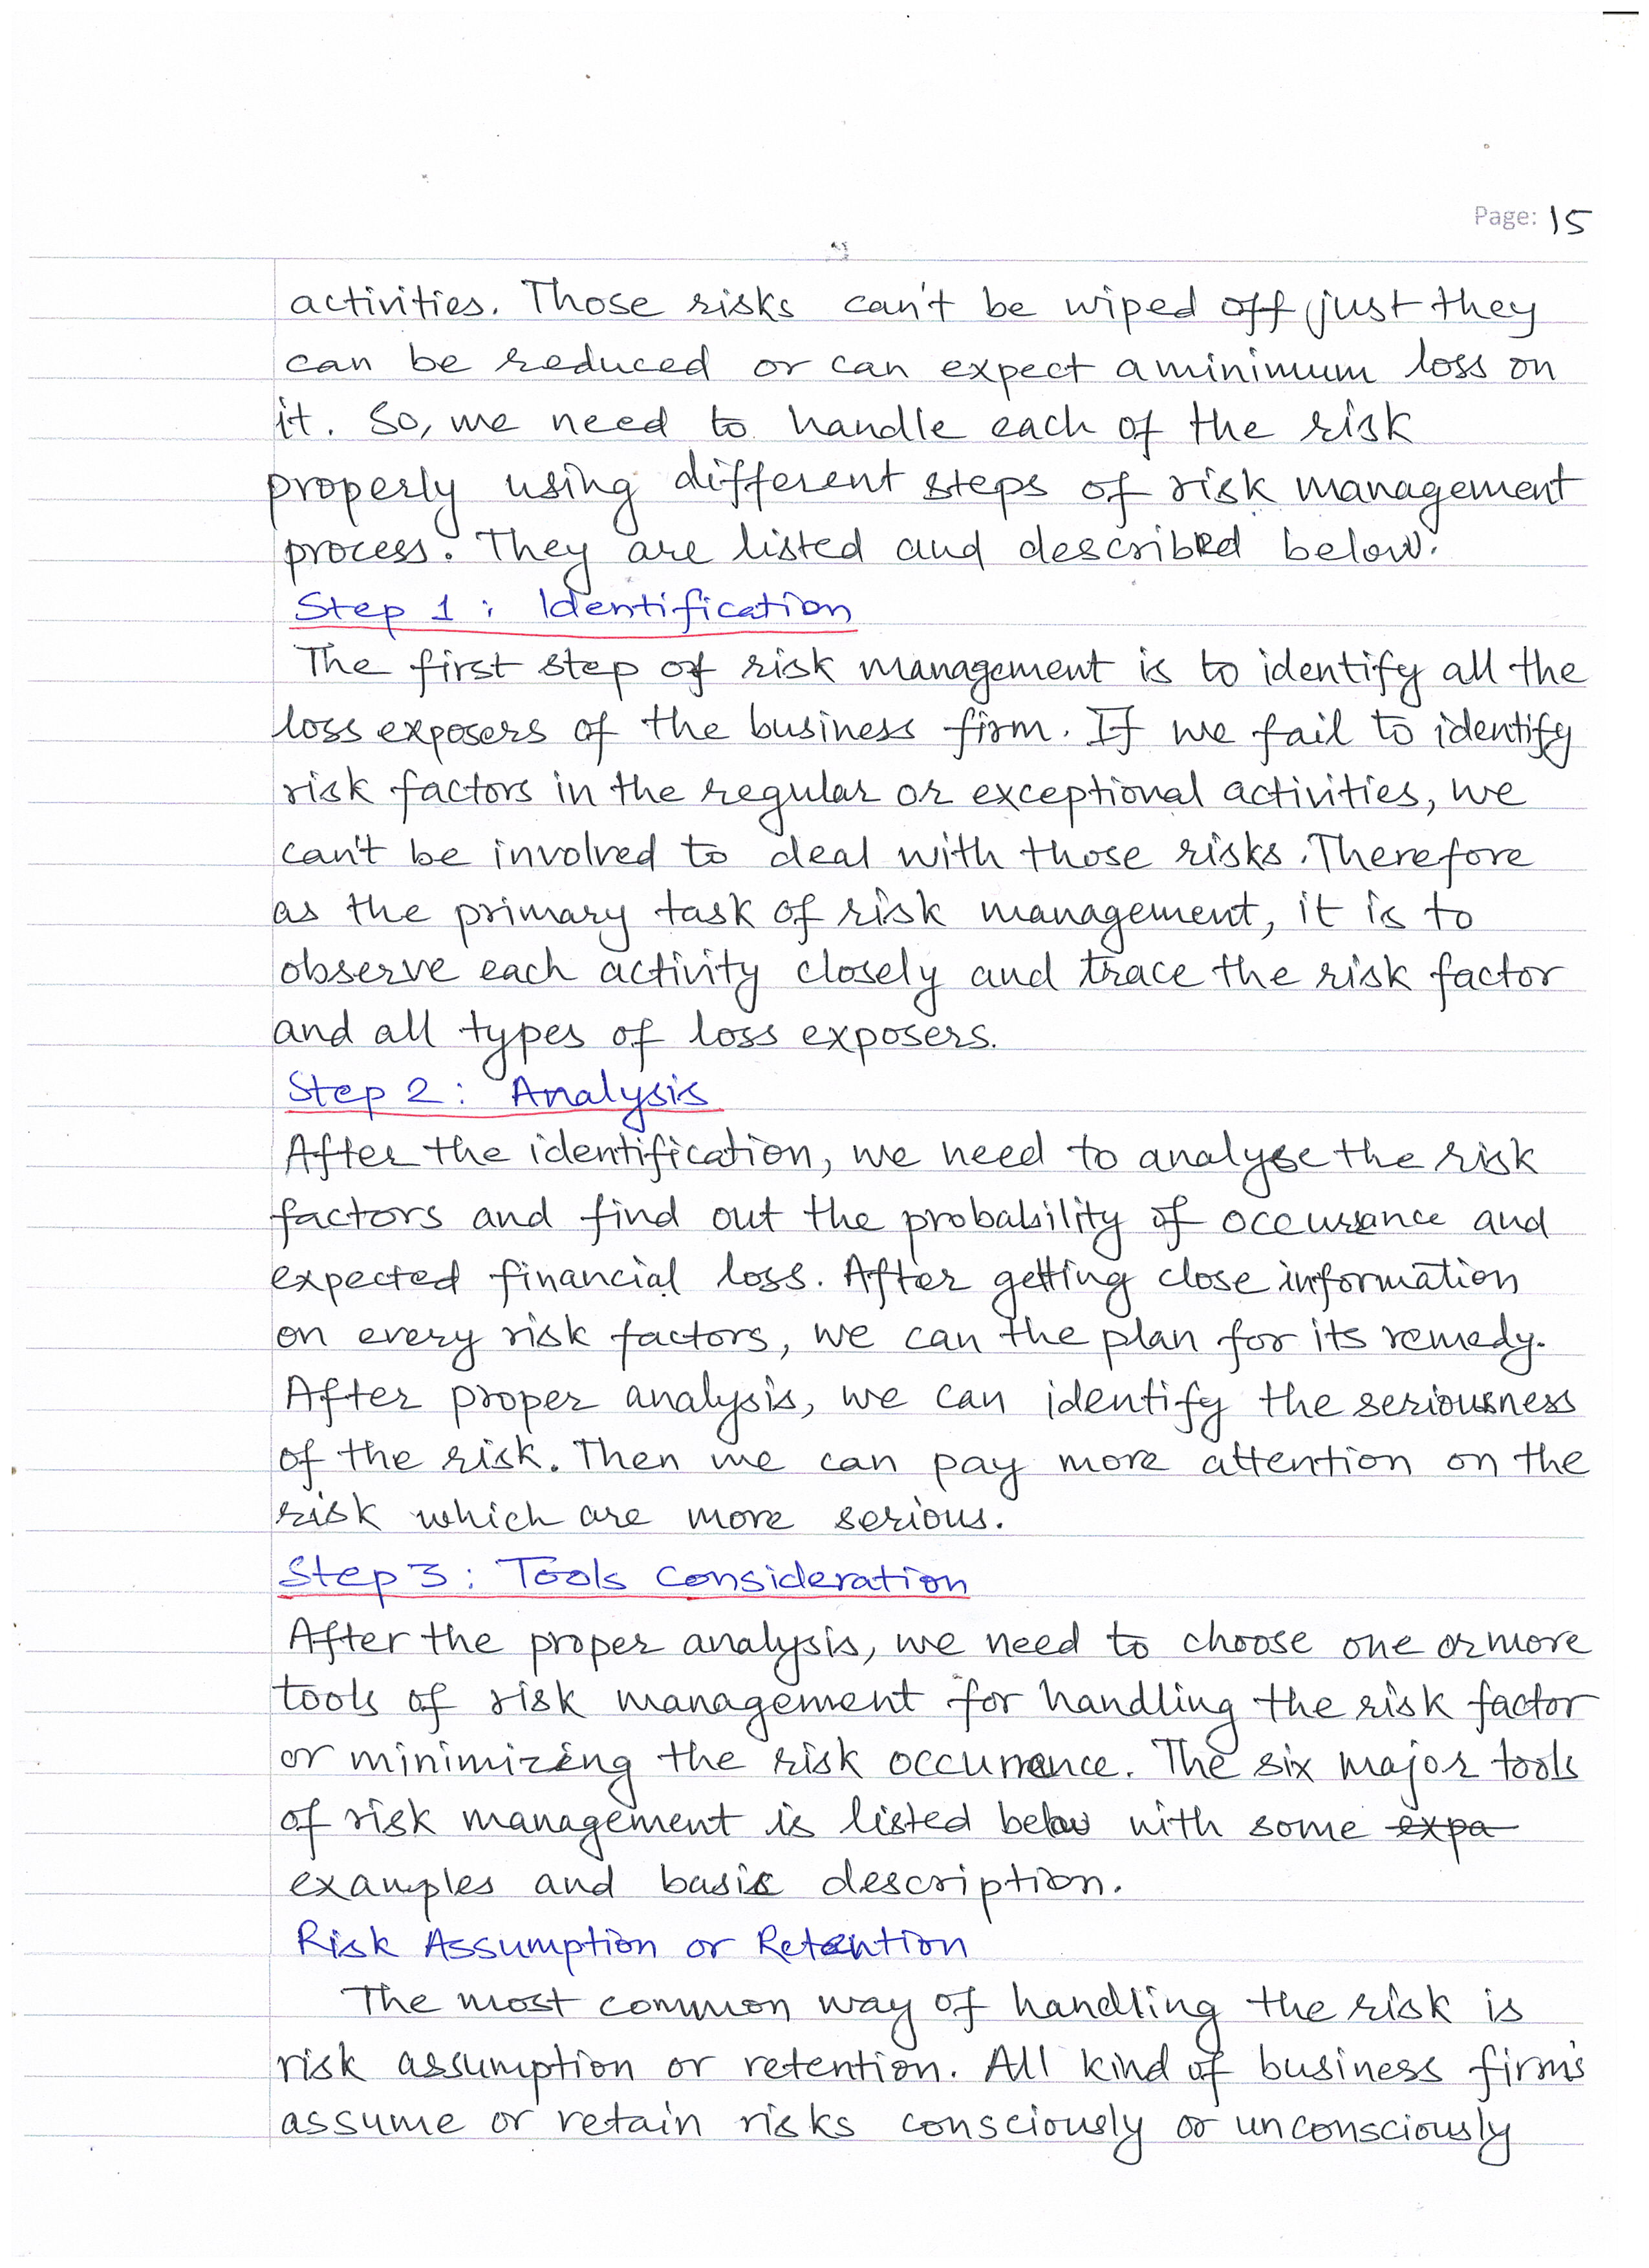 Page: 15
activities. Those risks can't be wiped off just they
can be reduced or can expect a minimum loss on
it. So, we need to handle each of the risk
properly using different steps of risk management
process. They are listed and described below.
Step 1: Identification
The first step of risk management is to identify all the
loss exposers of the business firm. If we fail to identify
risk factors in the regular or exceptional activities, we
can't be involved to deal with those risks. Therefore
as the primary task of risk management, it is to
observe each activity closely and trace the risk factor
and all types of loss exposers.
Step 2: Analysis
After the identification, we need to analyse the risk
factors and find out the probability of occurance and
expected financial loss. After getting close information
on every risk factors, we can the plan for its remedy.
After proper analysis, we can identify the seriousness
of the risk. Then we can pay more attention on the
risk which are more serious.
Step 3: Tools Consideration
After the proper analysis, we need to choose one or more
tools of risk management for handling the risk factor
or minimizing the risk occurrence. The six major tools
of risk management is listed below with some expa
examples and basic description.
Risk Assumption or Retention
The most common way of handling the risk is
risk assumption or retention. All kind of business firms
assume or retain risks consciously or unconsciously